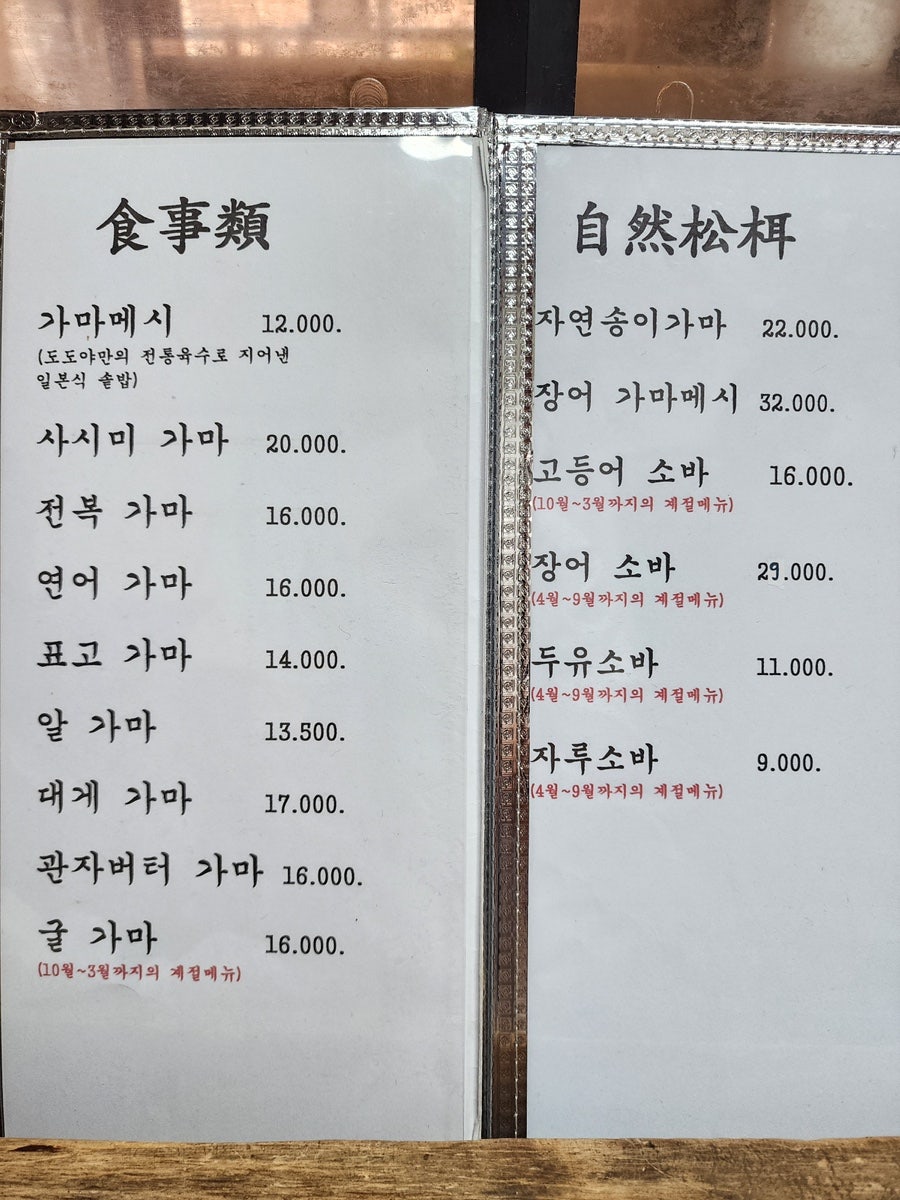 食事類
가마메시 12.000.
(도도야만의 전통육수로 지어낸
일본식 솥밥)
사시미 가마 20.000.
전복 가마 16.000.
연어 가마 16.000.
표고 가마 14.000.
알 가마 13.500.
대게 가마 17.000.
관자버터 가마 16.000.
굴 가마 16.000.
(10월~3월까지의 계절메뉴)
自然松栮
자연송이가마 22.000.
장어 가마메시 32.000.
고등어 소바 16.000.
(10월~3월까지의 계절메뉴)
장어 소바 29.000.
(4월~9월까지의 계절메뉴)
두유소바 11.000.
(4월~9월까지의 계절메뉴)
자루소바 9.000.
(4월~9월까지의 계절메뉴)